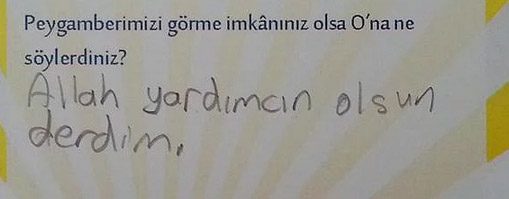 Peygamberimizi görme imkânınız olsa O'na ne
söylerdiniz?
Allah yardımcın olsun
derdim.